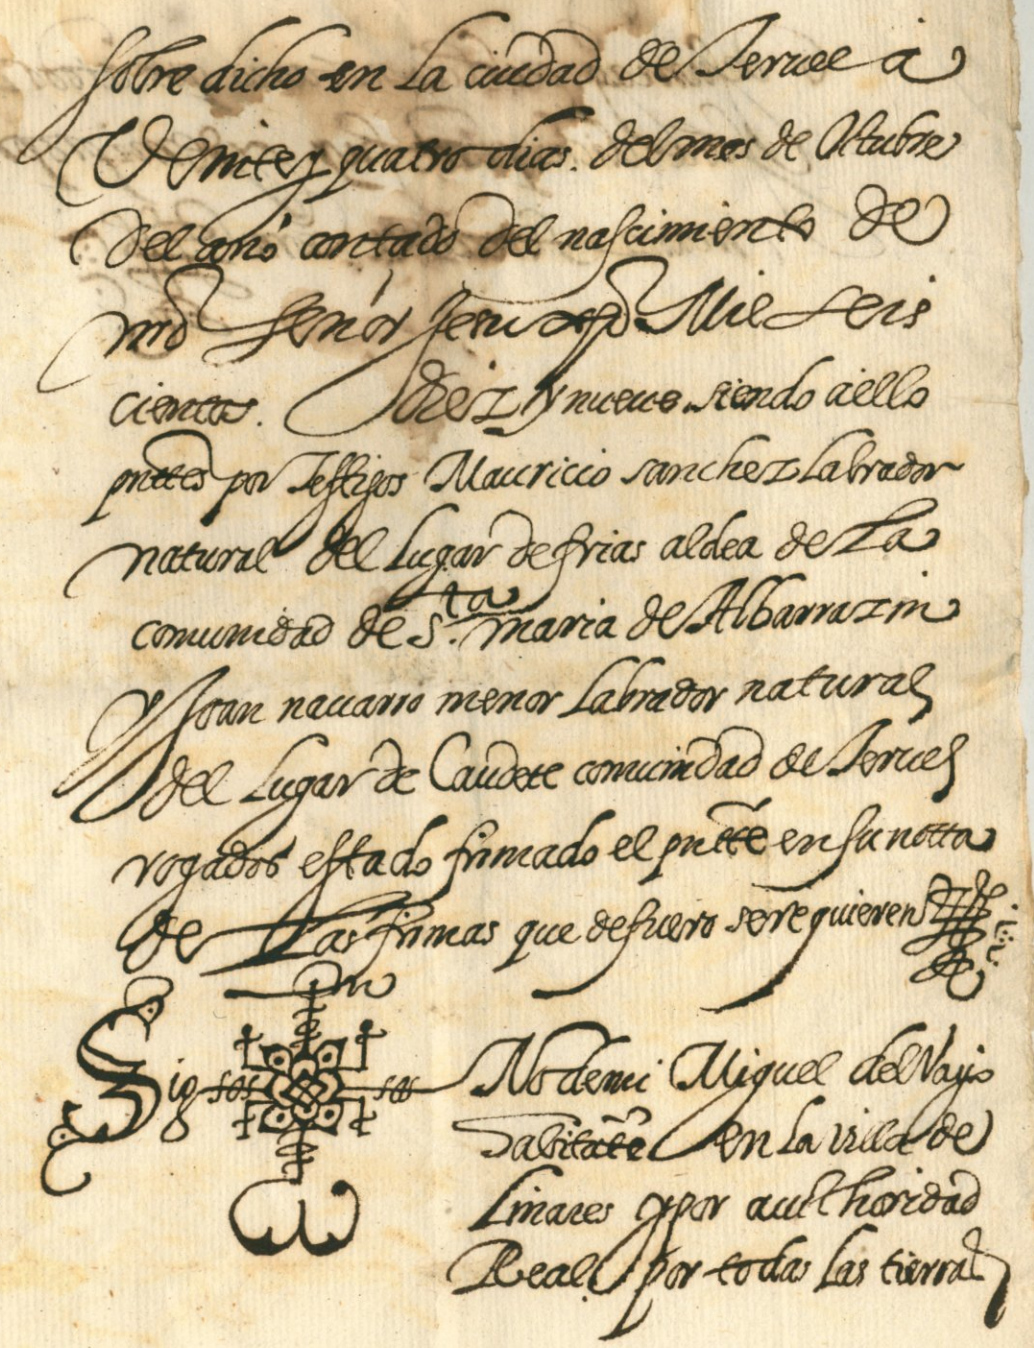 sobre dicho en la ciudad de Teruel a
Veinte y quatro dias. del mes de Otubre
del año contado del nascimiento de
nro señor Jesu xpo Mil seis
cientos. diez y nueve siendo a ello
pntes por Testigos Mauricio sanchez labrador
natural del Lugar de frias aldea de La
comunidad de S.ta maria de Albarrazin
Y Joan nauarro menor labrador natural
del Lugar de Caudete comunidad de Teruel
rogados esta do firmado el pntte en su notta
de las firmas que de fuero se requieren
Sig no de mi Miguel del Vayo
habitáte en la villa de
Linares y por authoridad
Real por todas las tierras